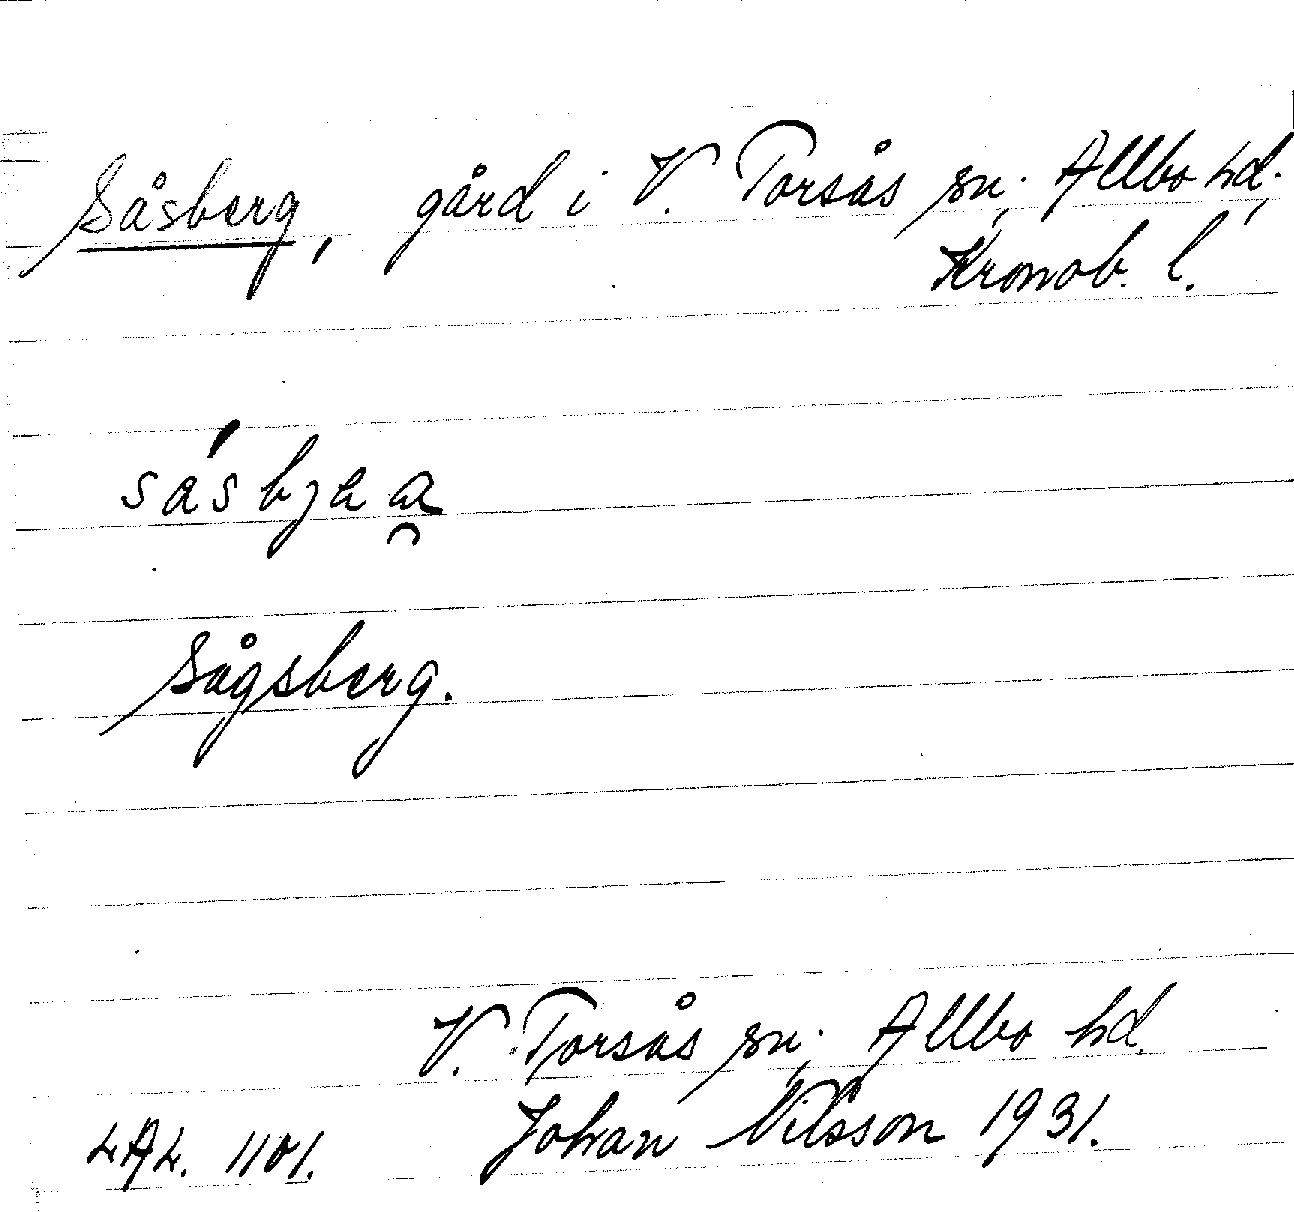 Såsberg, gård i V. Torsås sn; Allbo hd;
Kronob. l.
Sågsberg.
V. Torsås sn; Allbo hd.
LAL. 1101. Johan Nilsson 1931.